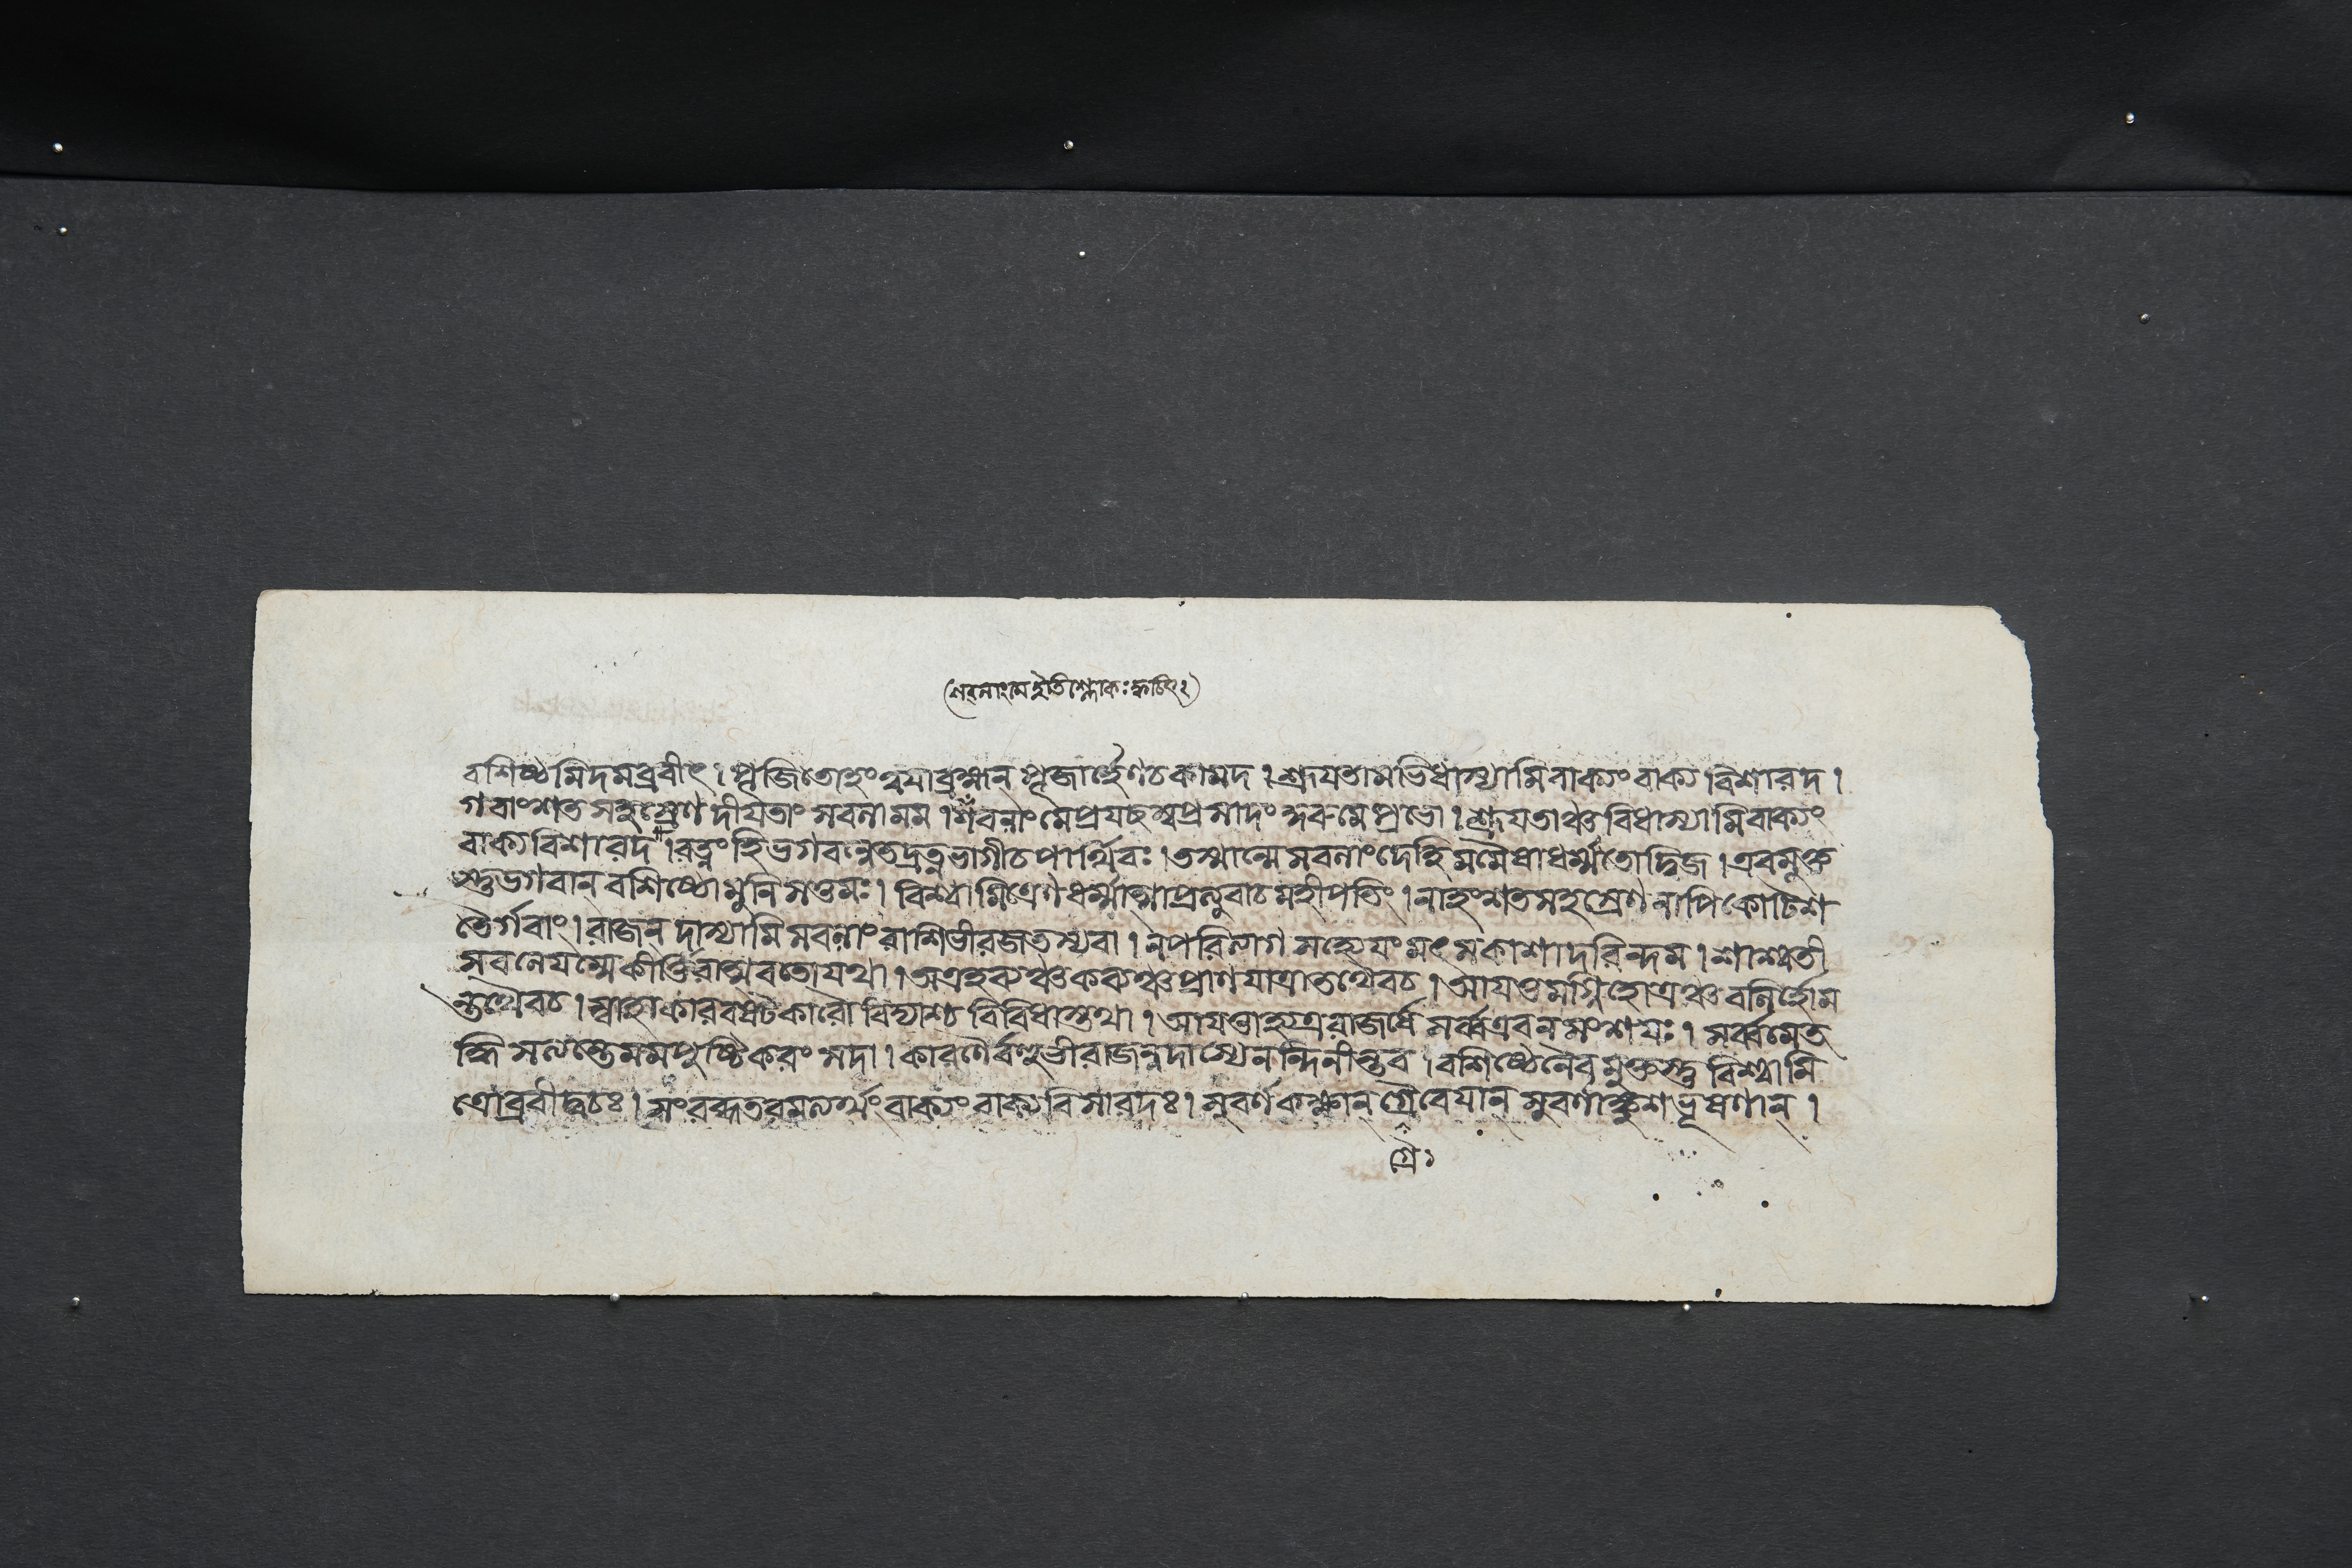 (শবলাংমেইতিশ্লোকঃক্বচিৎ)
বশিষ্ঠমিদমব্রবীৎ। পূজিতোহংত্বযাব্রহ্মন্ পূজার্হেণচকামদ। শ্রূযতামভিধাস্যামিবাক্যংবাক্য বিশারদ।
গবাংশত সহস্রেণ দীযতাং সবলামম। শবলাং মেপ্রযচ্ছস্বপ্রসাদং কুরুমেপ্রভো। শ্রূযতাঞ্চাবিধাস্যামিবাক্যং
বাক্যবিশারদ। রত্নংহিভগবন্নেতদ্রত্নভাগীচপার্থিবঃ। তস্মান্মেসবলাংদেহিমমৈষাধর্ম্মতোদ্বিজ। এবমুক্ত
স্তুভগবান্ বশিষ্ঠোমুনিসত্তমঃ। বিশ্বামিত্রেণধর্ম্মাত্মাপ্রত্যুবাচমহীপতিং। নাহংশতসহস্রেণনাপিকোটিশ
তৈর্গবাং। রাজন্ দাস্যামিসবলাংরাশিভীরজতস্যবা। নপরিত্যাগ মর্হেযংমৎসকাশাদরিন্দম। শাশ্বতী
সবলেযম্মেকীর্ত্তিরাত্মবতোযথা। অত্রহব্যঞ্চকব্যঞ্চপ্রাণযাত্রাতথৈবচ। আযত্তমগ্নিহোত্রঞ্চবলির্হোম
স্তথৈবচ। স্বাহাকারবষট্কারৌবিদ্যাশ্চবিবিধাস্তথা। আযত্তাহ্যত্ররাজর্ষেসর্ব্বত্রবনসংশযঃ। সর্ব্বমেত
দ্ধিসত্যন্তেমমপুষ্টিকরং সদা। কারণৈর্বহুভীরাজন্নদাস্যেনন্দিনীন্তব। বশিষ্ঠেনৈবমুক্তস্তুবিশ্বামি
ত্রোব্রবীদ্বচঃ। সংরব্ধতরমত্যর্থংবাক্যং বাক্যবিসারদঃ। সুবর্ণকক্ষান্ গ্রৈবেযান্ সুবর্ণাঙ্কুশভূষণান্।
গ্রৈ১